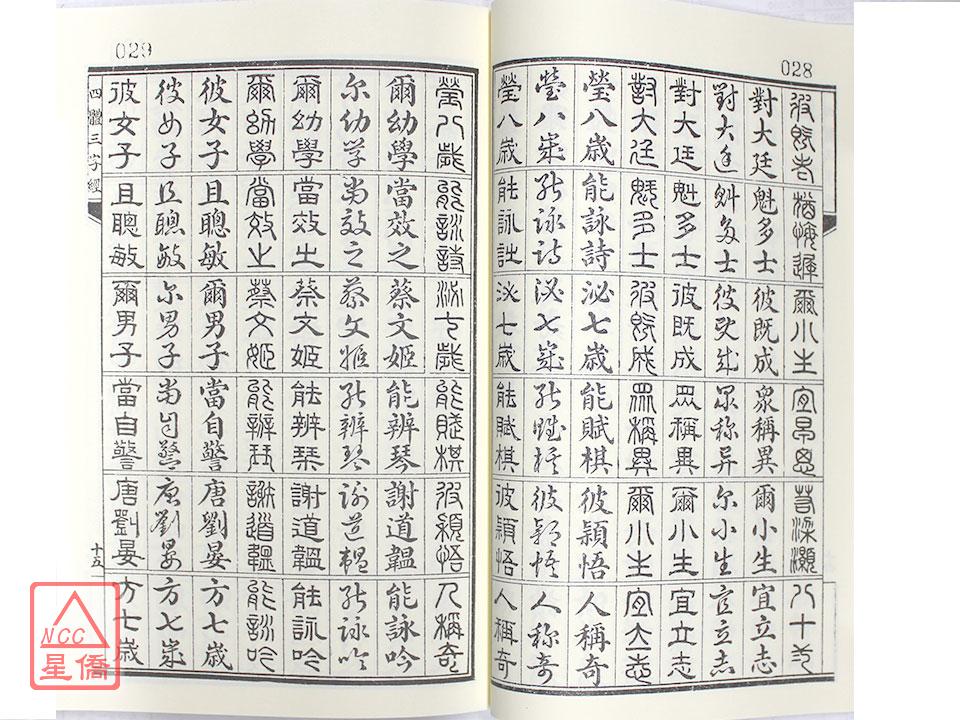 028
彼既老 猶悔遲 爾小生 宜早思 若梁灝 八十二
對大廷 魁多士 彼既成 眾稱異 爾小生 宜立志
對大廷 魁多士 彼既成 眾称异 尔小生 宜立志
對大廷 魁多士 彼既成 眾稱異 爾小生 宜立志
對大廷 魁多士 彼既成 眾稱異 爾小生 宜立志
瑩八歲 能詠詩 泌七歲 能賦棋 彼穎悟 人稱奇
瑩八歲 能詠詩 泌七歲 能賦棋 彼穎悟 人称奇
瑩八歲 能詠詩 泌七歲 能賦棋 彼穎悟 人稱奇
029
瑩八歲 能詠詩 泌七歲 能賦棋 彼穎悟 人稱奇
爾幼學 當效之 蔡文姬 能辨琴 謝道韞 能詠吟
尔幼学 當效之 蔡文姬 能辨琴 謝道韞 能詠吟
爾幼學 當效之 蔡文姬 能辨琴 謝道韞 能詠吟
爾幼學 當效之 蔡文姬 能辨琴 謝道韞 能詠吟
彼女子 且聰敏 爾男子 當自警 唐劉晏 方七歲
彼女子 且聰敏 尔男子 當自警 唐劉晏 方七歲
彼女子 且聰敏 爾男子 當自警 唐劉晏 方七歲
四體三字經
十五
NCC
星僑